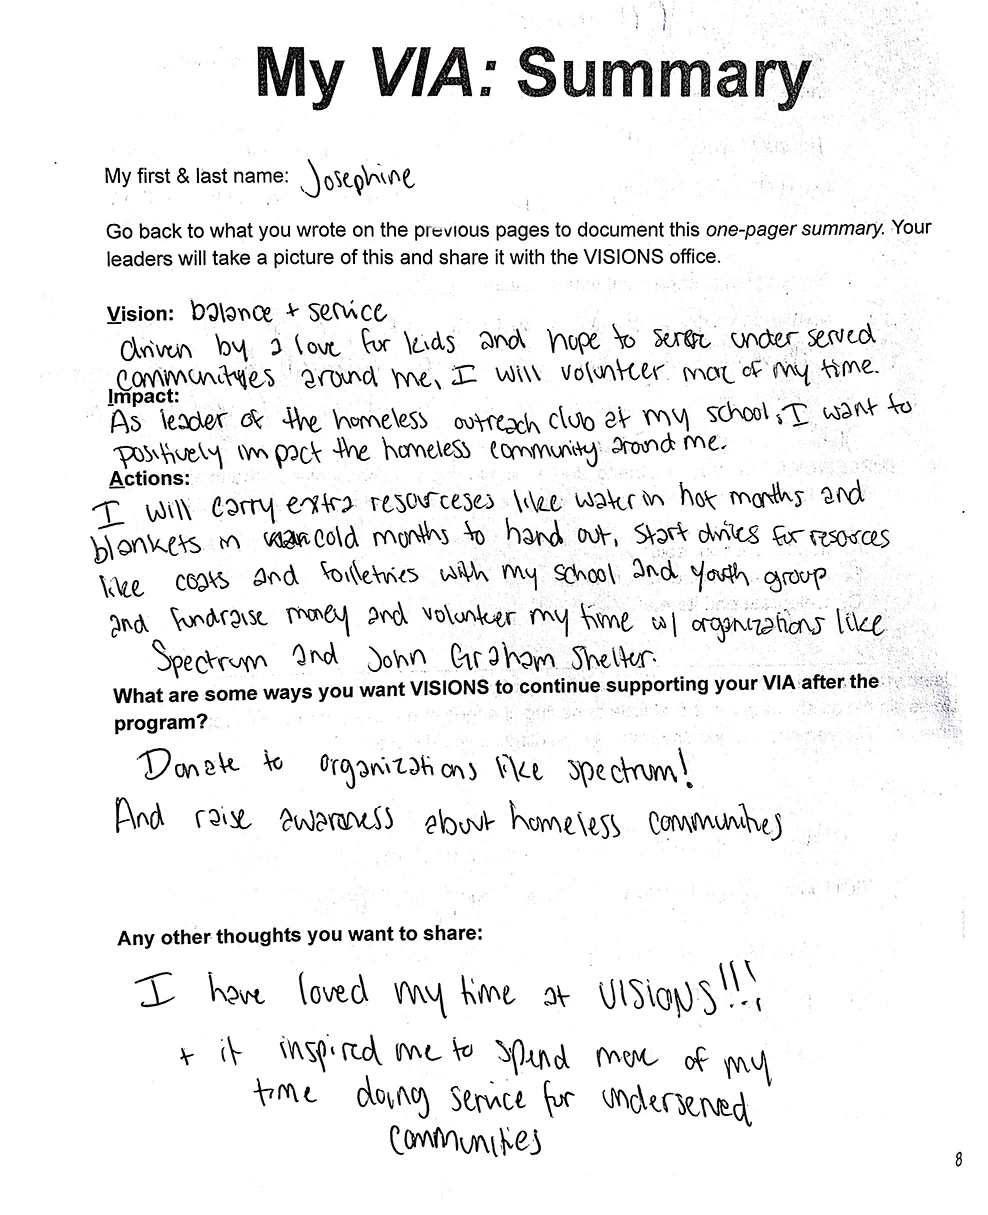 My VIA: Summary
My first & last name: Josephine
Go back to what you wrote on the previous pages to document this one-pager summary. Your
leaders will take a picture of this and share it with the VISIONS office.
Vision: balance + service
driven by a love for kids and hope to serve under served
communities around me, I will volunteer more of my time.
Impact:
As leader of the homeless outreach club at my school, I want to
positively impact the homeless community around me.
Actions:
I will carry extra resourceses like water in hot months and
blankets in cold months to hand out, start drives for resources
like coats and toiletries with my school and youth group
and fundraise money and volunteer my time w/ organizations like
Spectrum and John Graham Shelter.
What are some ways you want VISIONS to continue supporting your VIA after the
program?
Donate to organizations like spectrum!
And raise awareness about homeless communities
Any other thoughts you want to share:
I have loved my time at VISIONS!!!
+ it inspired me to spend more of my
time doing service for underserved
communities
8